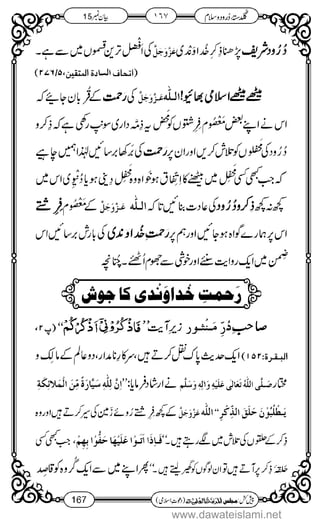 گلدستۂ دُرود و سلام ١٦٧ بیان نمبر 15
دُرُود شریف پڑھنا ذِکرِ خُداوندی عَزَّوَجَلَّ کی افضل ترین قسموں میں سے ہے۔
(اتحاف السادة المتقين، ٢٧٦/٥)
میٹھے میٹھے اسلامی بھائیو! اللّٰہ عَزَّوَجَلَّ کی رحمت کے قُربان جائیے کہ
اس نے اپنے بعض مَعْصُوم فِرِشتوں کو محض یہ ذِمّہ داری سونپ رکھی ہے کہ وہ ذِکر و
دُرُود کی محفلوں کو تلاش کریں اور ان پر رحمت کی برکھا برسائیں لہٰذا ہمیں چاہیے
کہ جب بھی کسی محفل میں بیٹھنے کا اِتّفاق ہو خواہ وہ محفل دِینی ہو یا دُنیوی اس میں
کچھ نہ کچھ ذکر و دُرُود کی عادت بنائیں تاکہ اللّٰہ عَزَّوَجَلَّ کے مَعْصُوم فِرِشتے
اس پر ہمارے گواہ ہوجائیں اور ہم پر رحمتِ خُداوندی کی بارش برسائیں اس
ضمن میں ایک روایت سنئے اور خوشی سے جھوم اُٹھئے۔ چُنانچہ
رَحمتِ خُداوَندی کا جوش
صاحبِ دُرِّ مَنثور زیرِ آیت ’’فَاذْكُرُوْنِیْۤ اَذْكُرْكُمْ‘‘ (پ٢،
البقرة: ١٥٢) ایک حدیث پاک نقل کرتے ہیں، سرکارِ نامدار، دو عالم کے مالِک و
مختار صَلَّی اللّٰہُ تَعَالٰی عَلَیْہِ وَاٰلِہٖ وَسَلَّم نے ارشاد فرمایا: ’’اِنَّ لِلّٰہِ سَیَّارَةً مِّنَ الْمَلَائِکَةِ
یَطْلُبُوْنَ حَلَقَ الذِّکْرِ، اللّٰہ عَزَّوَجَلَّ کے کچھ فِرِشتے روئے زمین کی سیر کرتے ہیں اور وہ
ذِکر کے حلقوں کی تلاش میں لگے رہتے ہیں۔‘‘ فَاِذَا اَتَوْا عَلَیْھَا حَفُّوْا بِھِمْ، جب بھی کسی
حلقۂ ذِکر پر آتے ہیں تو ان لوگوں کو گھیر لیتے ہیں۔‘‘ پھر اپنے میں سے ایک گروہ کو قاصِد
www.dawateislami.net
167